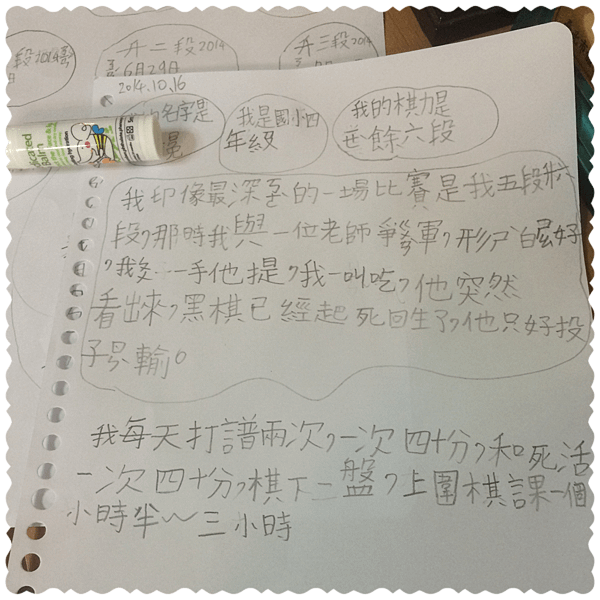 升二段2014
6月29日
升三段2014
2014.10.16
名字是
我是國小四
年級
我的棋力是
業餘六段
我印像最深的一場比賽是我五段升六
段,那時我與一位老師爭冠軍,形
,我一手他提,我一叫吃,他突然
看出來,黑棋已經起死回生了,他只好投
子認輸。
我每天打譜兩次,一次四十分,和死活
一次四十分,棋下一盤,上圍棋課一個
小時半~三小時